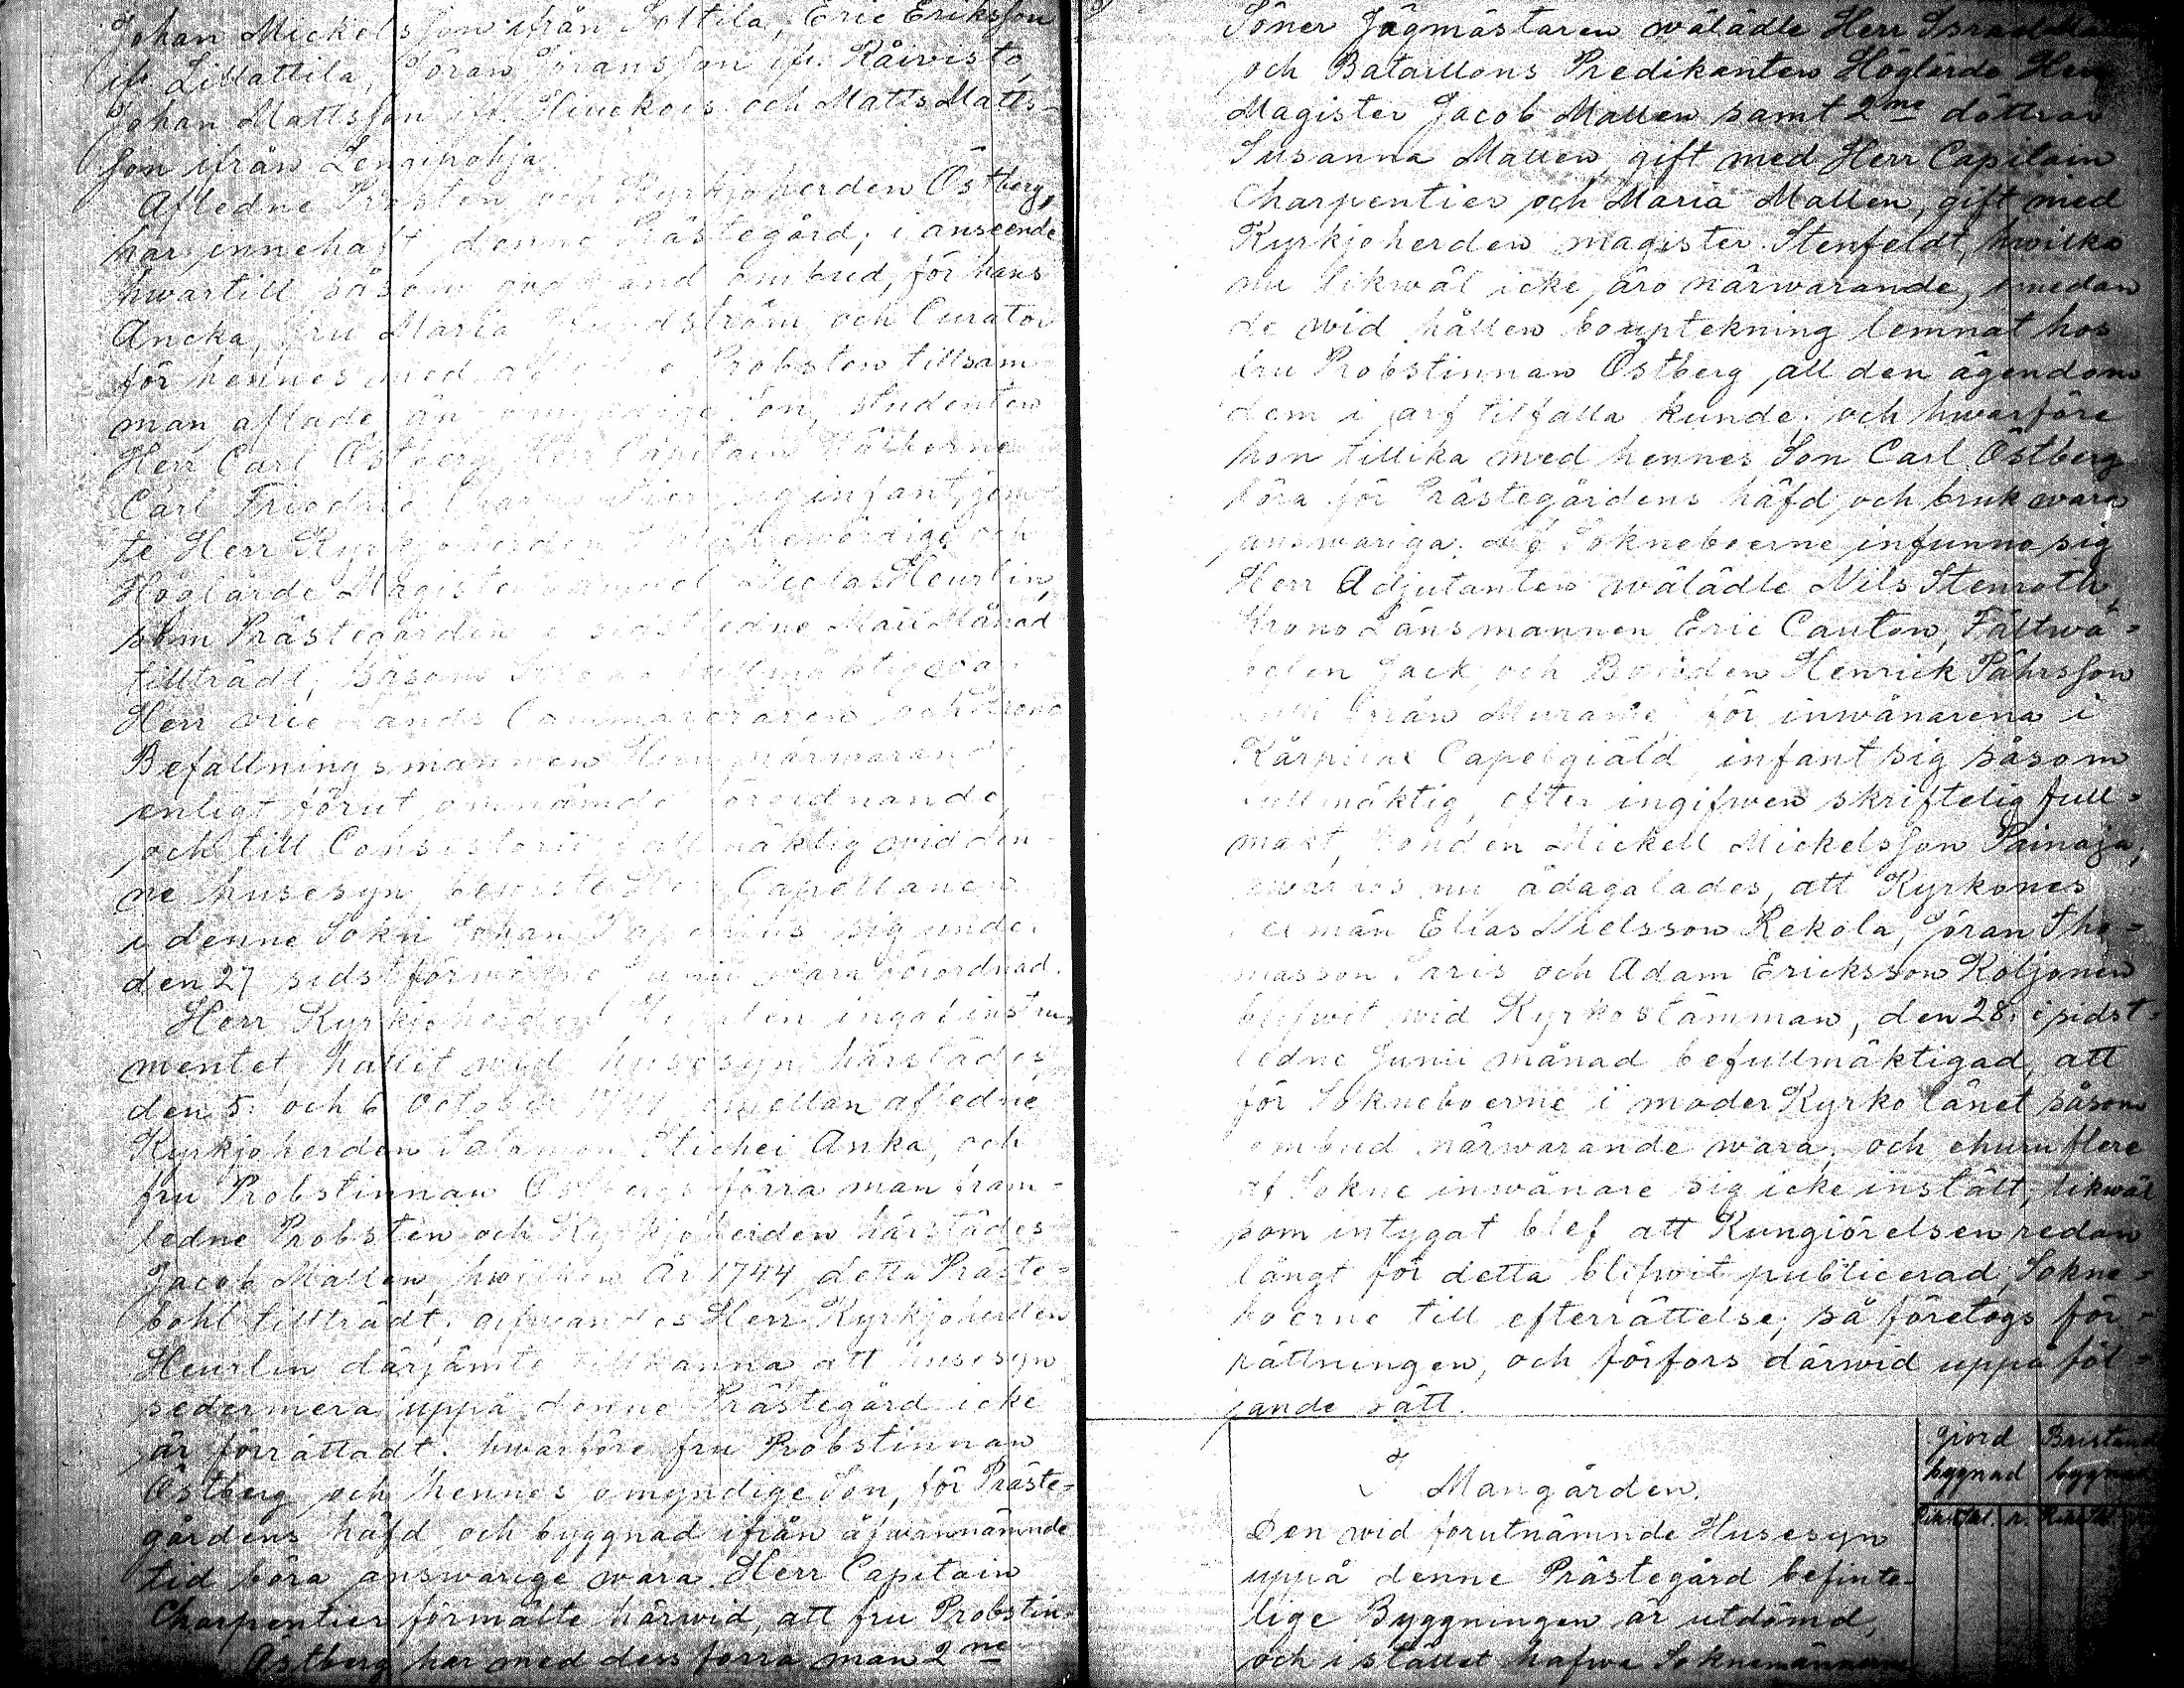 Johan Mickelsson ifrån Sottila, Eric Eriksson
ifr. Lillattila, Jöran Jöransson ifr. Råivisto,
Johan Mattsson ifr. och Matts Matts-
son ifrån
Afledne Probsten och Kyrkjoherden Östberg,
har innehaft denne Prästegård, i anseende
hwartill såsom ombud, för hans
Ancka, fru Maria och Curator
för hennes med Probsten tillsam
man aflade än omyndige Son, Studenten
Herr Carl Östberg, Herr Capitain Wälborne
Carl Friedric Charpentier sig infant, jem
te Herr Kyrkjoherden och
Höglärde Magister Heurlin,
som Prästegården i sistledne Maii Månad
tillträdt, såsom fullmäktig war
Herr Lands Cammereraren och Krono
Befallningsmannen närwarande,
enligt förut omnämde förordnande,
och till Consistorii fullmäktig wid den-
ne husesyn, bewiste Herr Capellanen
i denne Sokn Johan sig under
den 27 sidstförwekne Junii wara förordnad.
Herr Kyrkjoherden Heurlin ingaf instru-
mentet, hållit wid husesyn härstädes
den 5. och 6 October emellan afledne
Kyrkjoherden Salamon Stichei Anka, och
fru Probstinnan Östbergs förra man fram-
ledne Probsten och Kyrkjoherden härstädes
Jacob Mallen, hwilken År 1744 detta Präste-
bohl tillträdt, gifwandes Herr Kyrkjoherden
Heurlin därjämte tillkänna, att husesyn
sedermera uppå denne Prästegård icke
är förrättadt. hwarföre fru Probstinnan
Östberg och hennes omyndige Son, för Präste-
gårdens häfd och byggnad ifrån åfwannämnde
tid böra answarige wara. Herr Capitain
Charpentier förmälte härwid, att fru Probstin-
Östberg har med dess förra man 2ne
Söner Jägmästaren wälädle Herr Israel
och Bataillons Predikanten Höglärde Herr
Magister Jacob Mallen samt 2ne döttrar
Susanna Mallen, gift med Herr Capitain
Charpentier och Maria Mallen, gift med
Kyrkjoherden magister Stenfeldt, hwilka
nu likwäl icke äro närwarande, emedan
de wid hållen bouptekning lemnat hos
fru Probstinnan Östberg all den ägendom
dem i arf tilfalla kunde, och hwarföre
hon tillika med hennes Son Carl Östberg
böra för Prästegårdens häfd och bruk wara
answariga. Af Sokneboerne infunno sig
Herr Adjutanten wälädle Nils Stenroth,
Krono Länsmannen Eric Canton, Fältwä-
belen Jack och Bonden Henrick Påhrsson
ifrån Murame, för inwånarena i
Kårpilax Capelgiäld, infant sig såsom
fullmäktig, efter ingifwen skriftelig full-
makt, bonden Mickell Mickelsson Painaja,
hwarhos nu ådagalades, att Kyrkones
Sexmän Elias Nielsson Rekola, Jöran Tho-
masson Saris och Adam Ericksson Koljonen
blifwit wid Kyrkostämman, den 28. i sidst-
ledne Junii månad befullmäktigad, att
för Sokneboerne i moder Kyrko länet såsom
ombud närwarande wara, och ehuru flere
af Sokne inwånare sig icke instält, likwäl
som intygat blef att Kungiörelsen redan
långt för detta blifwit publicerad, Sokne-
boerne till efterrättelse; så företogs för-
rättningen, och förfors därwid uppå föl-
jande sätt.
gjord Bristande
byggnad byggnad
I Mangården.
Den wid förutnämnde Husesyn
uppå denne Prästegård befinte-
lige Byggningen är utdömd,
och i stället hafwa Soknemännerne